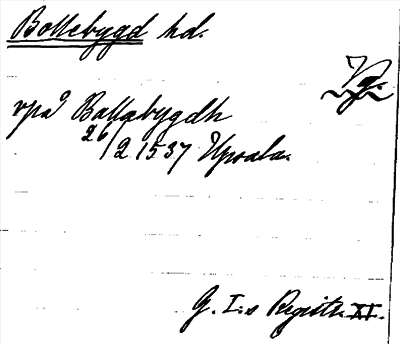 Bollebygd hd.
Vg.
vpa Ballabygdh
26/2 1537 Upsala.
G. I:s Registr. XI.